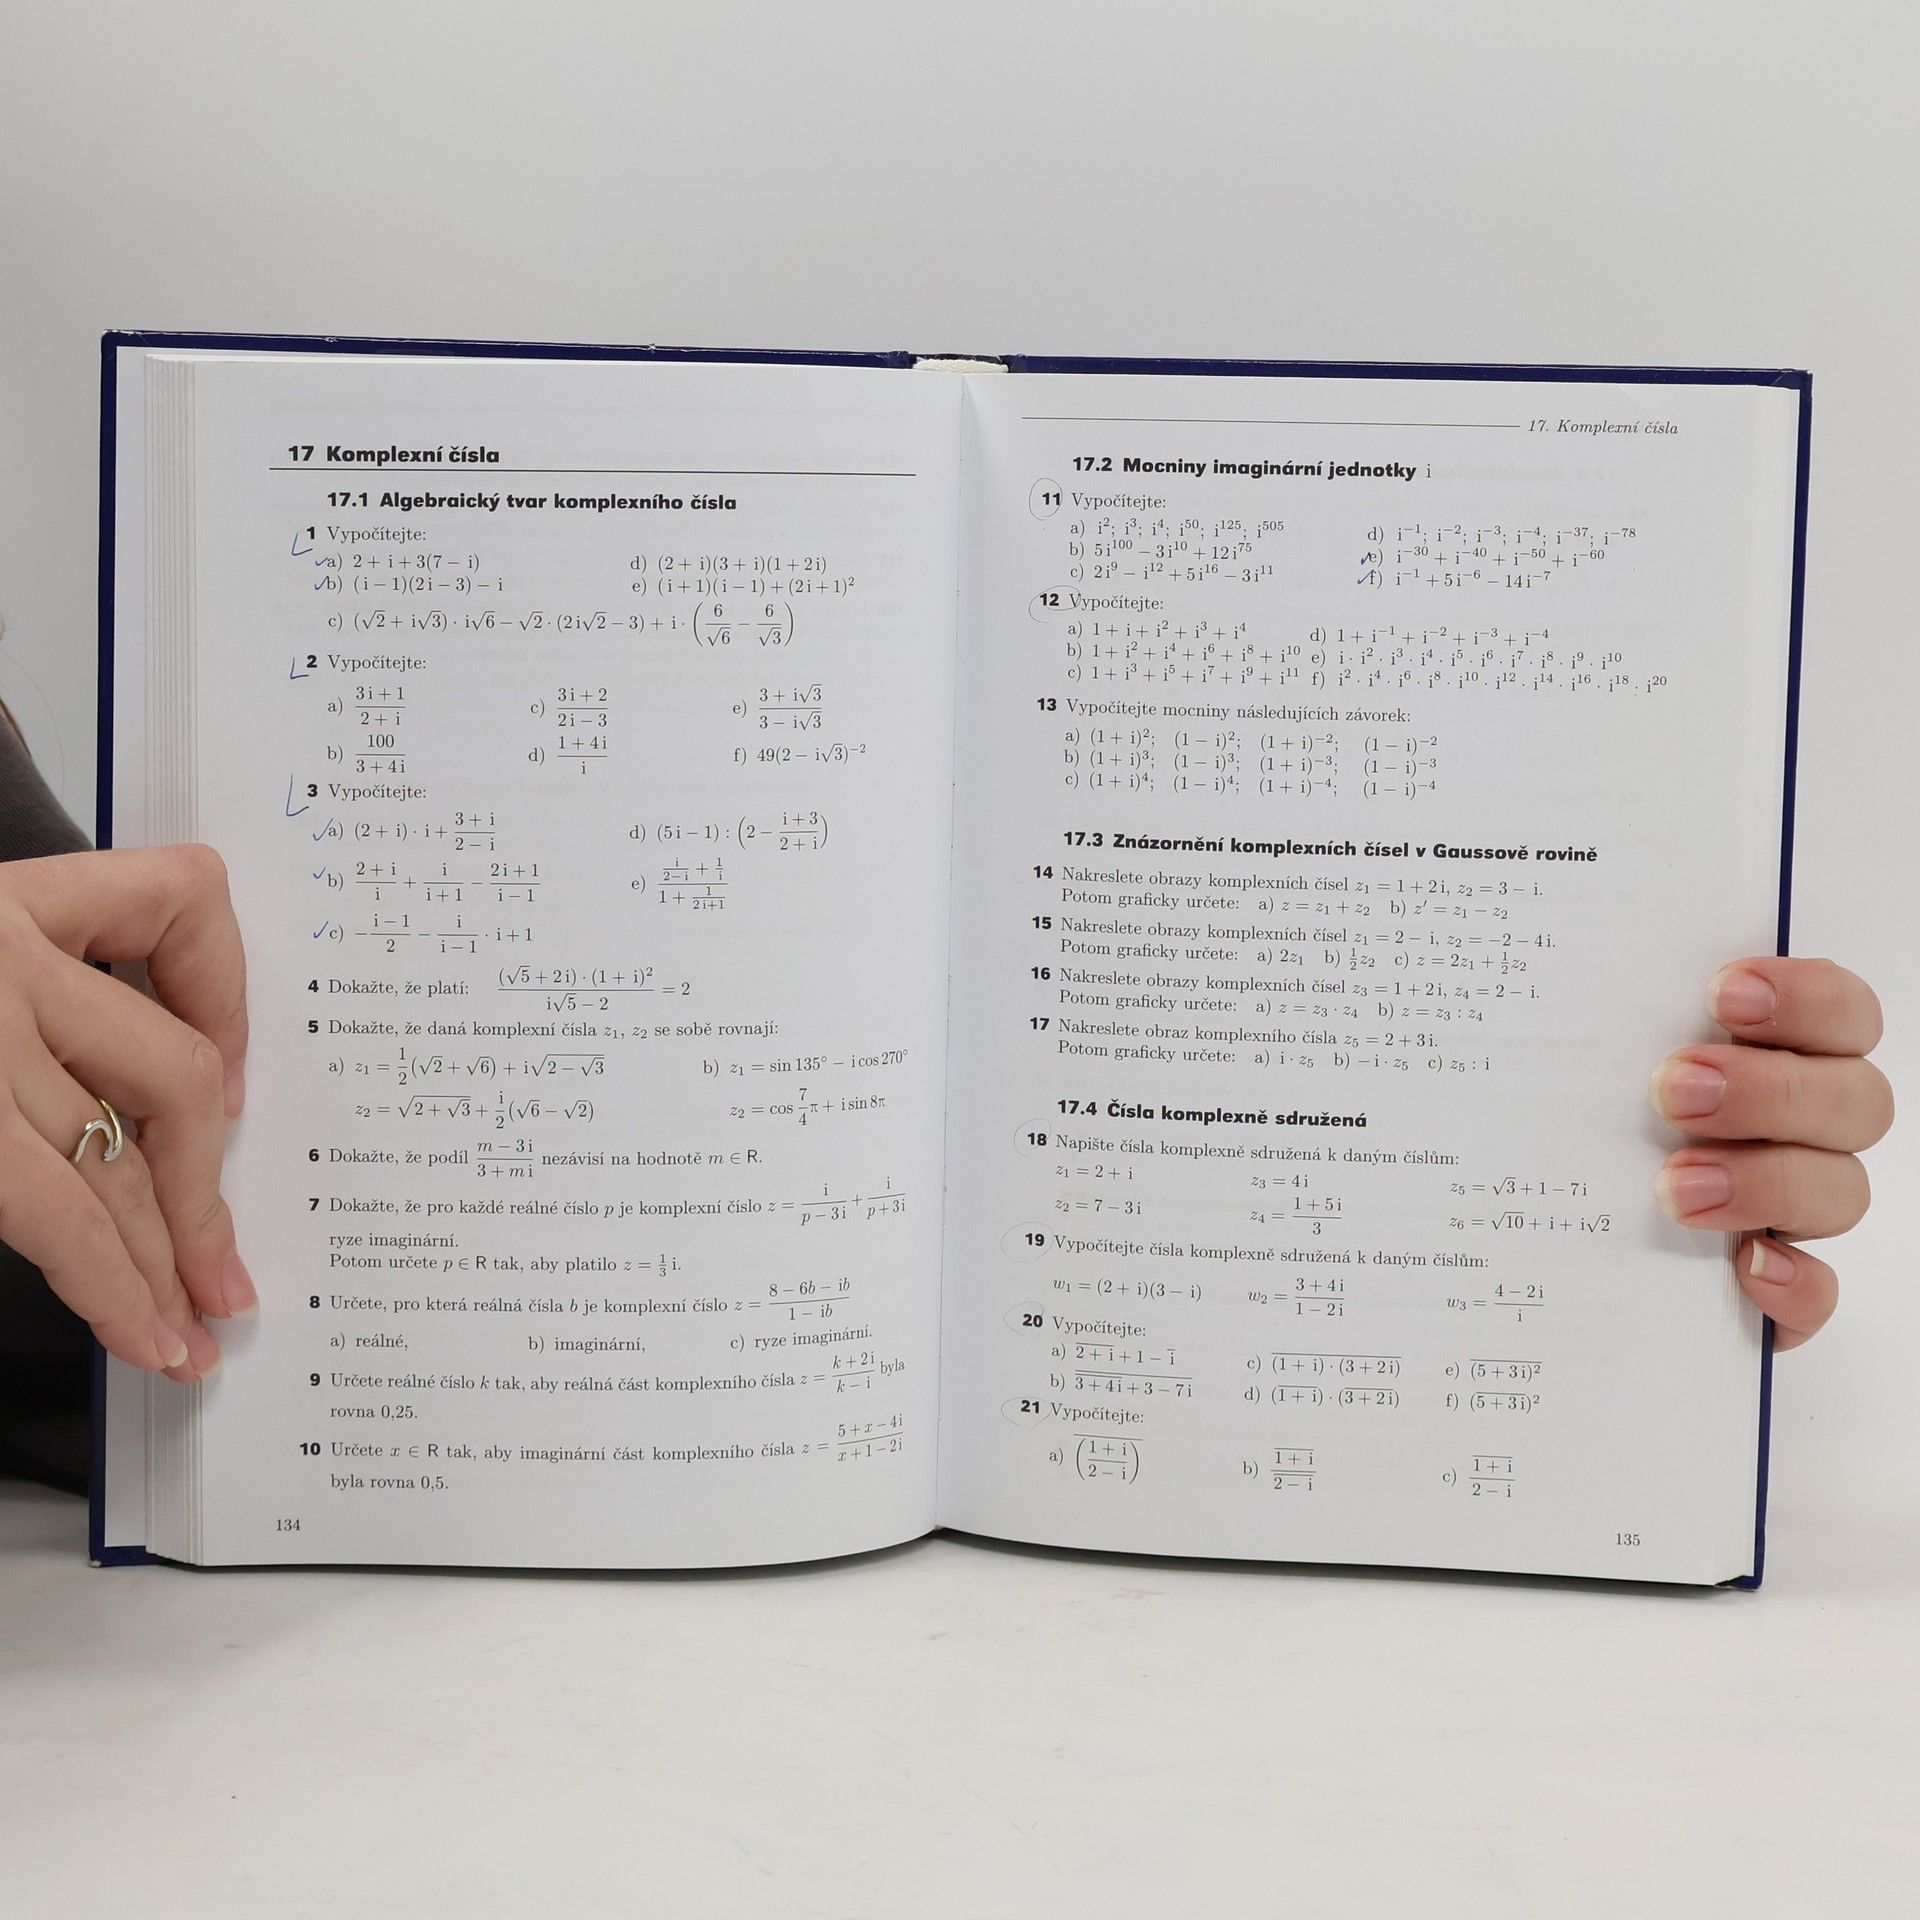 17 Komplexní čísla
17.1 Algebraický tvar komplexního čísla
1 Vypočítejte:
a) 2 + i + 3(7 − i) d) (2 + i)(3 + i)(1 + 2i)
b) (i − 1)(2i − 3) − i e) (i + 1)(i − 1) + (2i + 1)²
c) (√2 + i√3) · i√6 − √2 · (2i√2 − 3) + i · (6/√6 − 6/√3)
2 Vypočítejte:
a) (3i + 1)/(2 + i) c) (3i + 2)/(2i − 3) e) (3 + i√3)/(3 − i√3)
b) 100/(3 + 4i) d) (1 + 4i)/i f) 49(2 − i√3)⁻²
3 Vypočítejte:
a) (2 + i) · i + (3 + i)/(2 − i) d) (5i − 1) : (2 − (i + 3)/(2 + i))
b) (2 + i)/i + i/(i + 1) − (2i + 1)/(i − 1) e) (i/(2−i) + 1/i)/(1 + 1/(2i+1))
c) −(i − 1)/2 − i/(i − 1) · i + 1
4 Dokažte, že platí: ((√5 + 2i) · (1 + i)²)/(i√5 − 2) = 2
5 Dokažte, že daná komplexní čísla z₁, z₂ se sobě rovnají:
a) z₁ = 1/2(√2 + √6) + i√(2 − √3) b) z₁ = sin 135° − i cos 270°
z₂ = √(2 + √3) + i/2(√6 − √2) z₂ = cos 7/4π + i sin 8π
6 Dokažte, že podíl (m − 3i)/(3 + mi) nezávisí na hodnotě m ∈ R.
7 Dokažte, že pro každé reálné číslo p je komplexní číslo z = i/(p − 3i) + i/(p + 3i)
ryze imaginární.
Potom určete p ∈ R tak, aby platilo z = 1/3 i.
8 Určete, pro která reálná čísla b je komplexní číslo z = (8 − 6b − ib)/(1 − ib)
a) reálné, b) imaginární, c) ryze imaginární.
9 Určete reálné číslo k tak, aby reálná část komplexního čísla z = (k + 2i)/(k − i) byla
rovna 0,25.
10 Určete x ∈ R tak, aby imaginární část komplexního čísla z = (5 + x − 4i)/(x + 1 − 2i)
byla rovna 0,5.
134
17. Komplexní čísla
17.2 Mocniny imaginární jednotky i
11 Vypočítejte:
a) i²; i³; i⁴; i⁵⁰; i¹²⁵; i⁵⁰⁵ d) i⁻¹; i⁻²; i⁻³; i⁻⁴; i⁻³⁷; i⁻⁷⁸
b) 5i¹⁰⁰ − 3i¹⁰ + 12i⁷⁵ e) i⁻³⁰ + i⁻⁴⁰ + i⁻⁵⁰ + i⁻⁶⁰
c) 2i⁹ − i¹² + 5i¹⁶ − 3i¹¹ f) i⁻¹ + 5i⁻⁶ − 14i⁻⁷
12 Vypočítejte:
a) 1 + i + i² + i³ + i⁴ d) 1 + i⁻¹ + i⁻² + i⁻³ + i⁻⁴
b) 1 + i² + i⁴ + i⁶ + i⁸ + i¹⁰ e) i · i² · i³ · i⁴ · i⁵ · i⁶ · i⁷ · i⁸ · i⁹ · i¹⁰
c) 1 + i³ + i⁵ + i⁷ + i⁹ + i¹¹ f) i² · i⁴ · i⁶ · i⁸ · i¹⁰ · i¹² · i¹⁴ · i¹⁶ · i¹⁸ · i²⁰
13 Vypočítejte mocniny následujících závorek:
a) (1 + i)²; (1 − i)²; (1 + i)⁻²; (1 − i)⁻²
b) (1 + i)³; (1 − i)³; (1 + i)⁻³; (1 − i)⁻³
c) (1 + i)⁴; (1 − i)⁴; (1 + i)⁻⁴; (1 − i)⁻⁴
17.3 Znázornění komplexních čísel v Gaussově rovině
14 Nakreslete obrazy komplexních čísel z₁ = 1 + 2i, z₂ = 3 − i.
Potom graficky určete: a) z = z₁ + z₂ b) z′ = z₁ − z₂
15 Nakreslete obrazy komplexních čísel z₁ = 2 − i, z₂ = −2 − 4i.
Potom graficky určete: a) 2z₁ b) 1/2z₂ c) z = 2z₁ + 1/2z₂
16 Nakreslete obrazy komplexních čísel z₃ = 1 + 2i, z₄ = 2 − i.
Potom graficky určete: a) z = z₃ · z₄ b) z = z₃ : z₄
17 Nakreslete obraz komplexního čísla z₅ = 2 + 3i.
Potom graficky určete: a) i · z₅ b) −i · z₅ c) z₅ : i
17.4 Čísla komplexně sdružená
18 Napište čísla komplexně sdružená k daným číslům:
z₁ = 2 + i z₃ = 4i z₅ = √3 + 1 − 7i
z₂ = 7 − 3i z₄ = (1 + 5i)/3 z₆ = √10 + i + i√2
19 Vypočítejte čísla komplexně sdružená k daným číslům:
w₁ = (2 + i)(3 − i) w₂ = (3 + 4i)/(1 − 2i) w₃ = (4 − 2i)/i
20 Vypočítejte:
a) 2 + i + 1 − i c) (1 + i) · (3 + 2i) e) (5 + 3i)²
b) 3 + 4i + 3 − 7i d) (1 + i) · (3 + 2i) f) (5 + 3i)²
21 Vypočítejte:
a) ((1 + i)/(2 − i)) b) (1 + i)/(2 − i) c) (1 + i)/(2 − i)
135